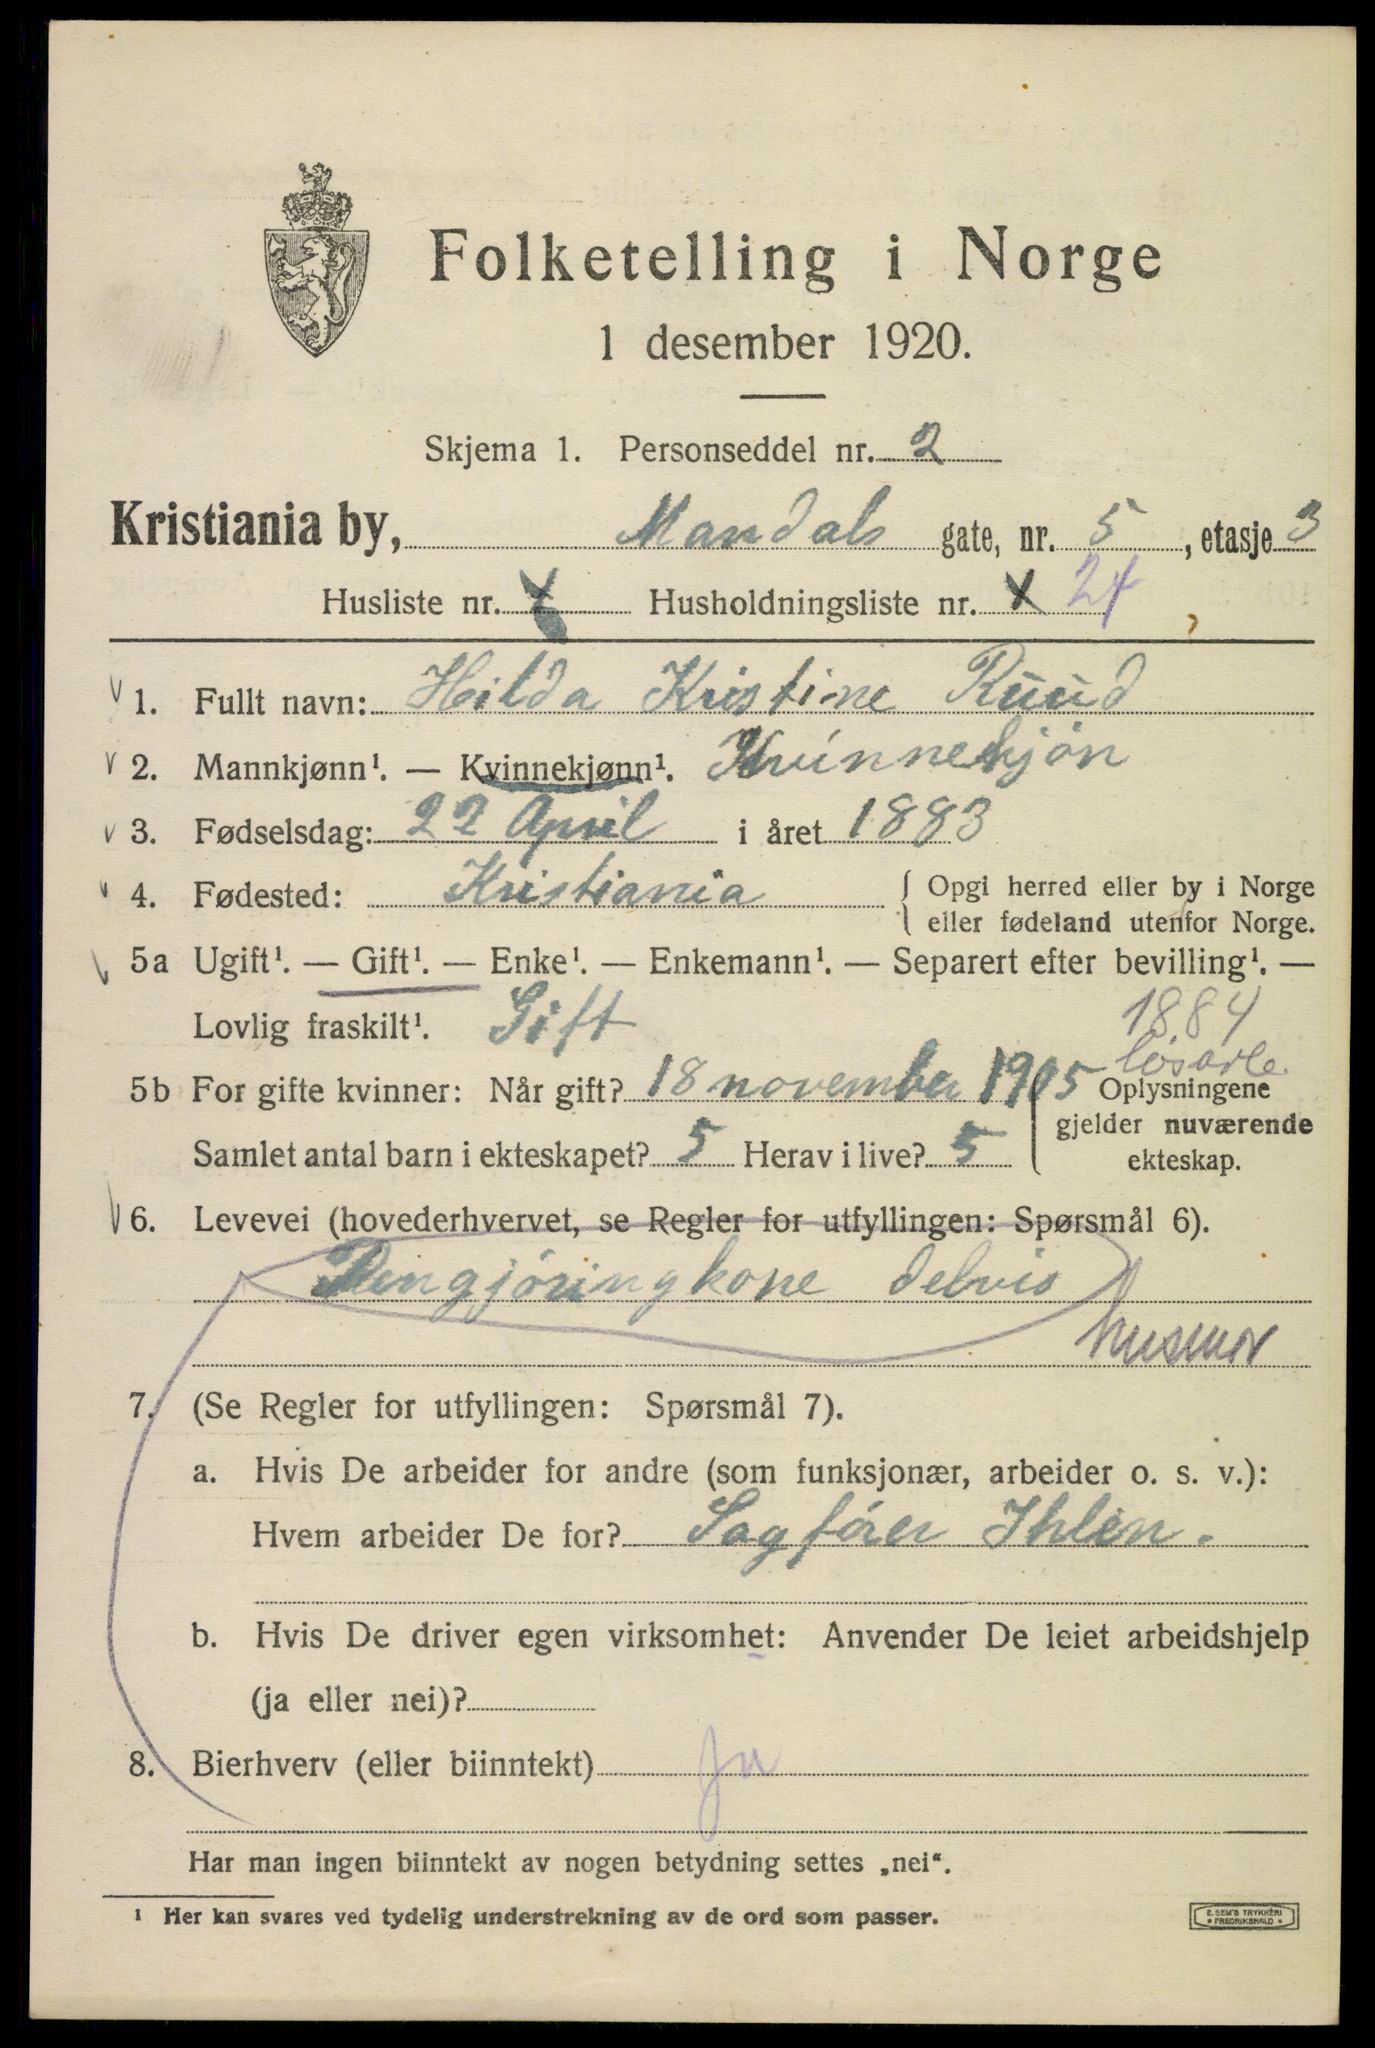 Folketelling i Norge
1 desember 1920.
Skjema 1. Personseddel nr. 2
Kristiania by, Mandals gate, nr. 5, etasje 3
Husliste nr. Husholdningsliste nr. 24
1. Fullt navn: Hilda Kristine Ruud
2. Mannkjønn¹. — Kvinnekjønn¹. Kvinnekjön
3. Fødselsdag: 22 April i året 1883
4. Fødested: Kristiania { Opgi herred eller by i Norge
eller fødeland utenfor Norge.
5a Ugift¹. — Gift¹. — Enke¹. — Enkemann¹. — Separert efter bevilling¹. —
Lovlig fraskilt¹. Gift 1884
5b For gifte kvinner: Når gift? 18 november 1905 Oplysningene
gjelder nuværende
Samlet antal barn i ekteskapet? 5 Herav i live? 5
ekteskap.
6. Levevei (hovederhvervet, se Regler for utfyllingen: Spørsmål 6).
Rengjöringkone delvis
husmor
7. (Se Regler for utfyllingen: Spørsmål 7).
a. Hvis De arbeider for andre (som funksjonær, arbeider o. s. v.):
Hvem arbeider De for? Sagförer Ihlen.
b. Hvis De driver egen virksomhet: Anvender De leiet arbeidshjelp
(ja eller nei)?
8. Bierhverv (eller biinntekt) Ja
Har man ingen biinntekt av nogen betydning settes „nei“.
¹ Her kan svares ved tydelig understrekning av de ord som passer.
E. SEM'S TRYKKERI
• FREDRIKSHALD •